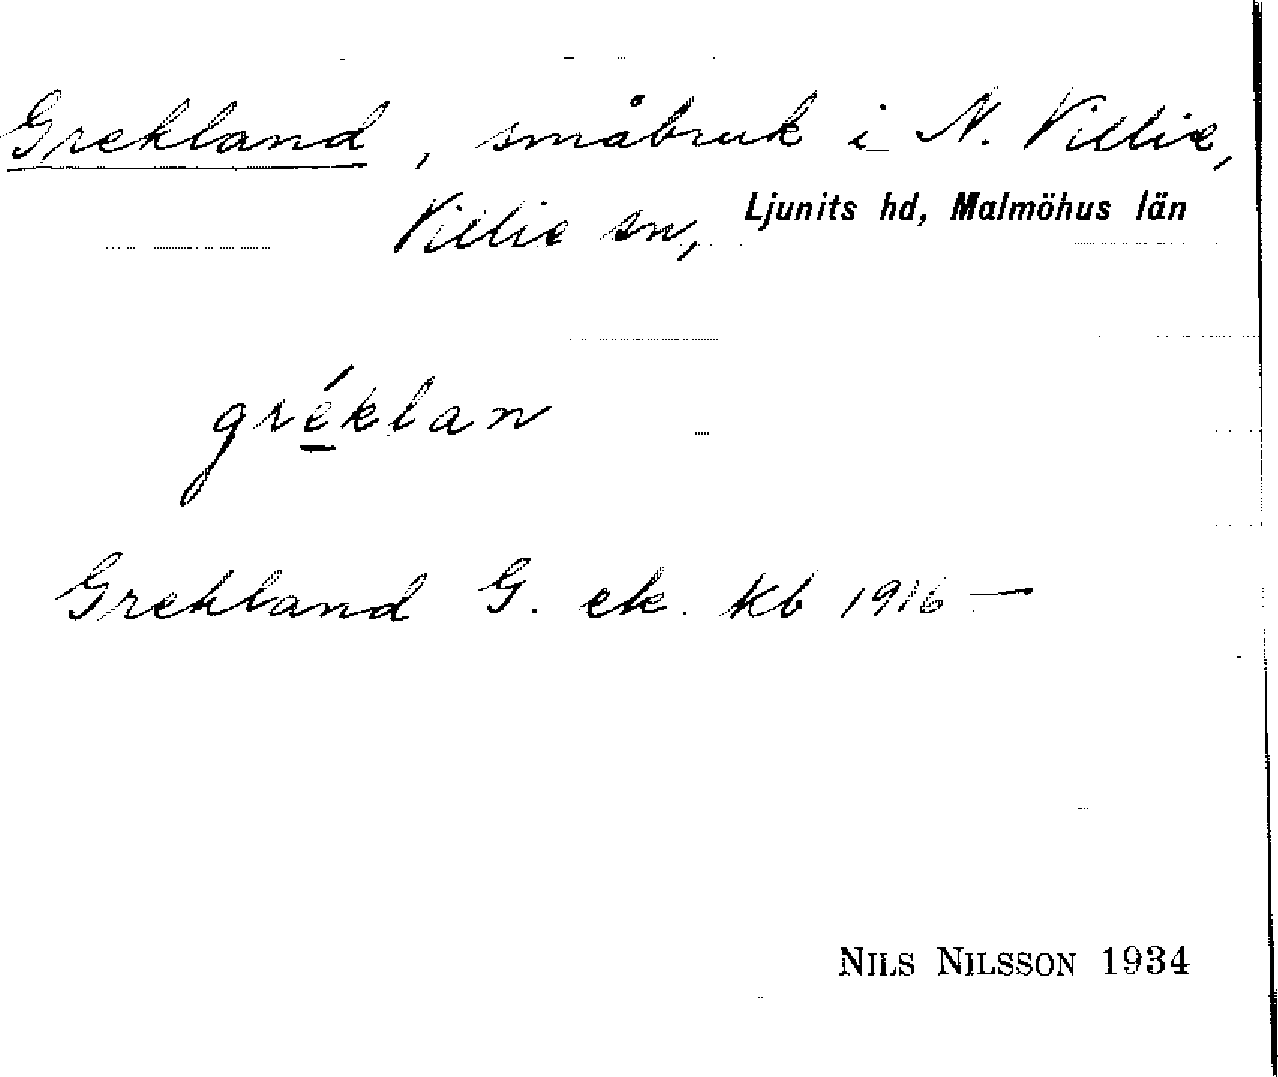 Grekland, småbruk i N. Villie,
Villie sn, Ljunits hd, Malmöhus län
gréklan
Grekland G. ek. kb 1916 —
NILS NILSSON 1934